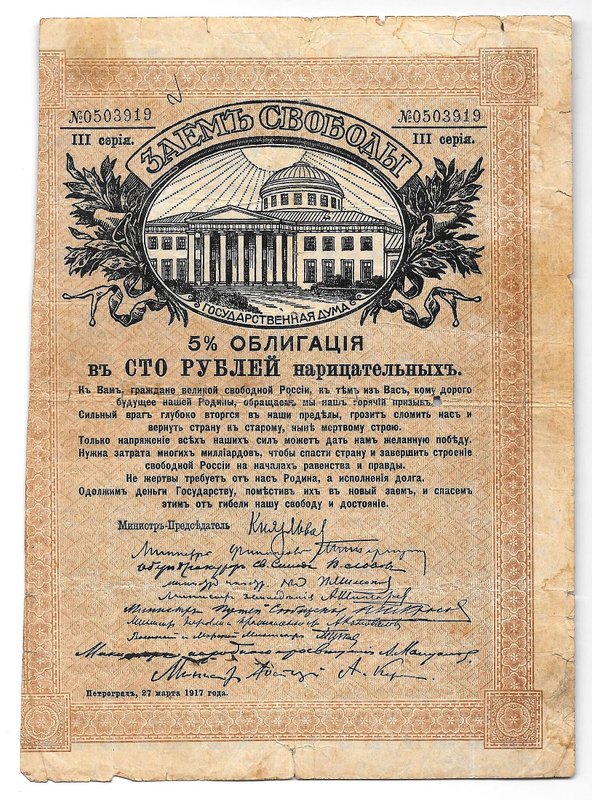 №0503919 №0503919
III серія. III серія.
ЗАЕМЪ СВОБОДЫ
ГОСУДАРСТВЕННАЯ ДУМА
5% ОБЛИГАЦІЯ
въ СТО РУБЛЕЙ нарицательныхъ.
Къ Вамъ, граждане великой свободной Россіи, къ тѣмъ изъ Васъ, кому дорого
будущее нашей Родины, обращаемъ мы нашъ горячій призывъ.
Сильный врагъ глубоко вторгся въ наши предѣлы, грозитъ сломить насъ и
вернуть страну къ старому, нынѣ мертвому строю.
Только напряженіе всѣхъ нашихъ силъ можетъ дать намъ желанную побѣду.
Нужна затрата многихъ милліардовъ, чтобы спасти страну и завершить строеніе
свободной Россіи на началахъ равенства и правды.
Не жертвы требуетъ отъ насъ Родина, а исполненія долга.
Одолжимъ деньги Государству, помѣстивъ ихъ въ новый заемъ, и спасемъ
этимъ отъ гибели нашу свободу и достояніе.
Министръ-Предсѣдатель Кн. Львов
Министръ финансовъ
Министръ земледѣлія А. Шингарев
Министръ Путей Сообщенія Н. Некрасов
Министръ торговли и промышленности А. Коновалов
Военный и Морской Министръ
Министръ народнаго просвѣщенія А. Мануйлов
Министръ Юстиціи А. Керенский
Петроградъ, 27 марта 1917 года.